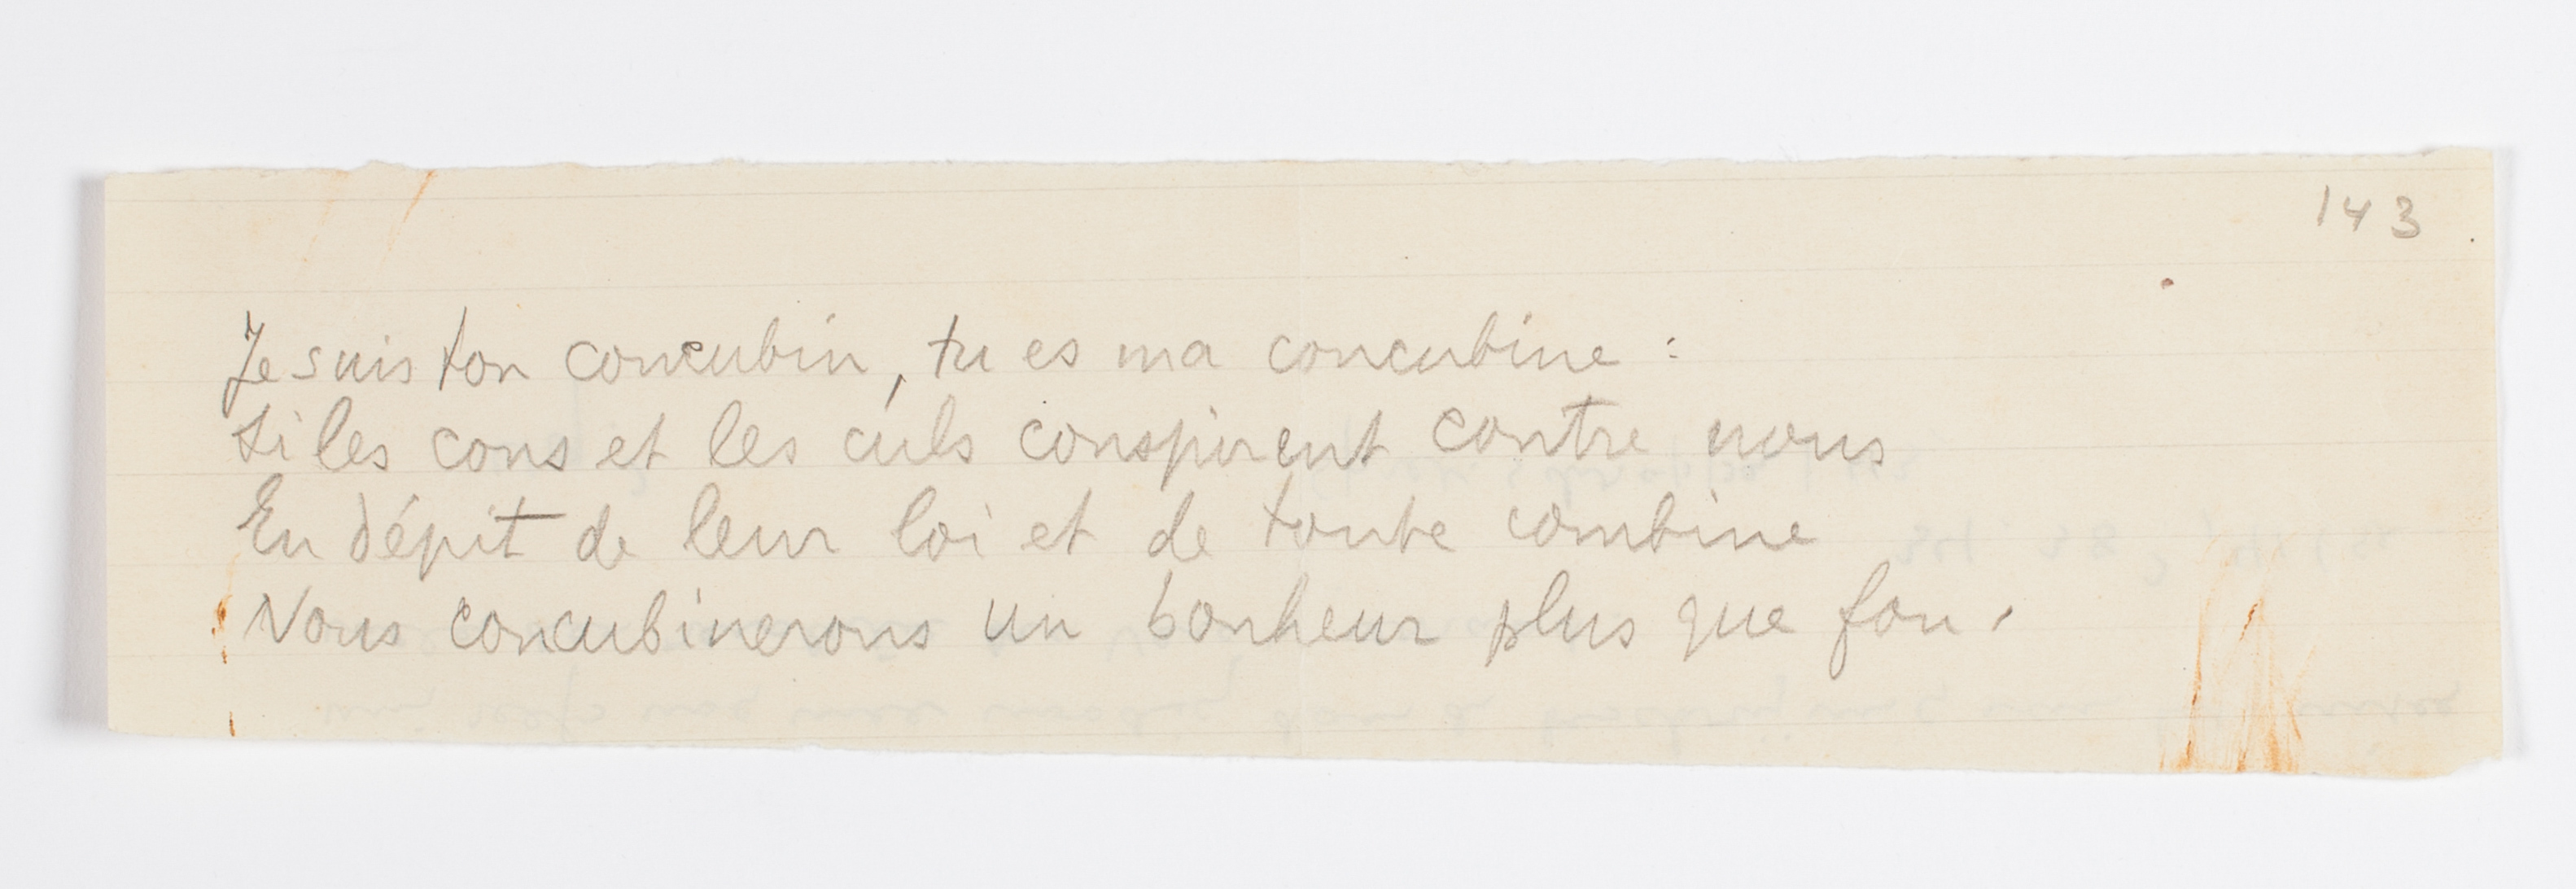 143
Je suis ton concubin, tu es ma concubine :
Si les cons et les culs conspirent contre nous
En dépit de leur loi et de toute combine
Nous concubinerons un bonheur plus que fou.